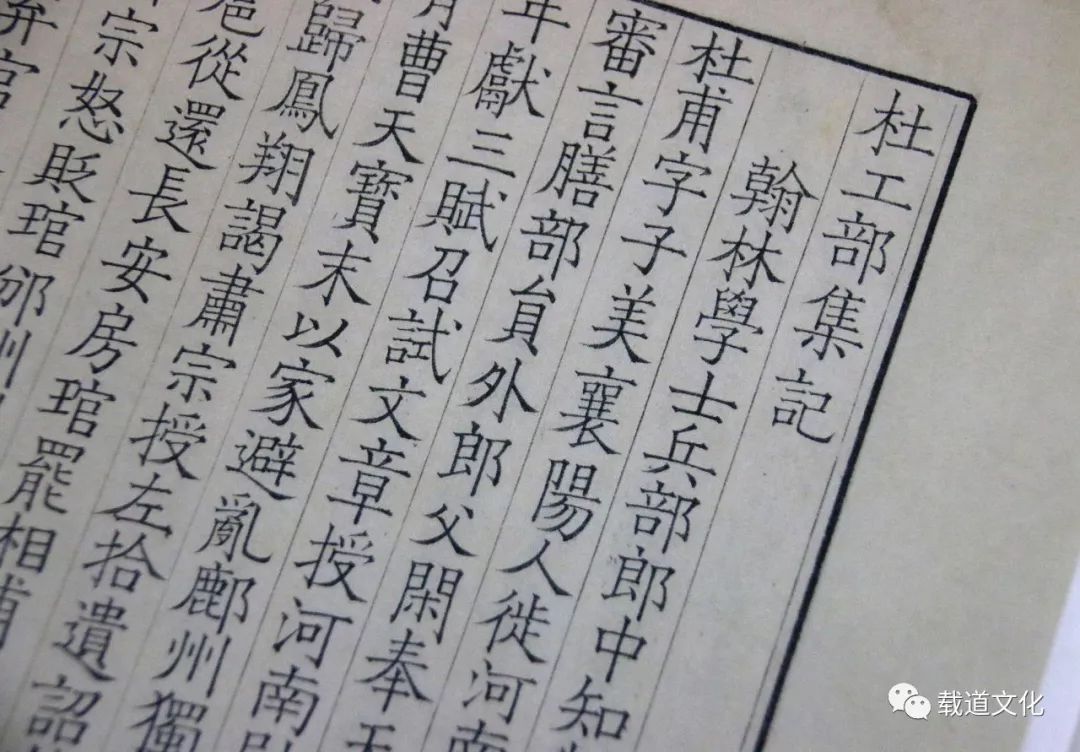 杜工部集記
翰林學士兵部郎中知
杜甫字子美襄陽人徙河南
審言膳部貟外郎父閑奉天
年獻三賦召試文章授河南
曹天寶末以家避亂鄜州獨
歸鳳翔謁肅宗授左拾遺詔
扈從還長安房琯罷相甫
宗怒貶琯邠州
弃官
载道文化